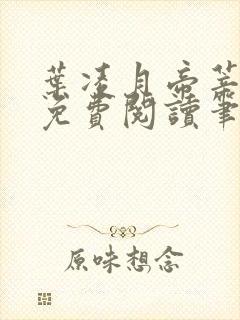 葉凌月帝莘
免費閱讀筆
原味想念